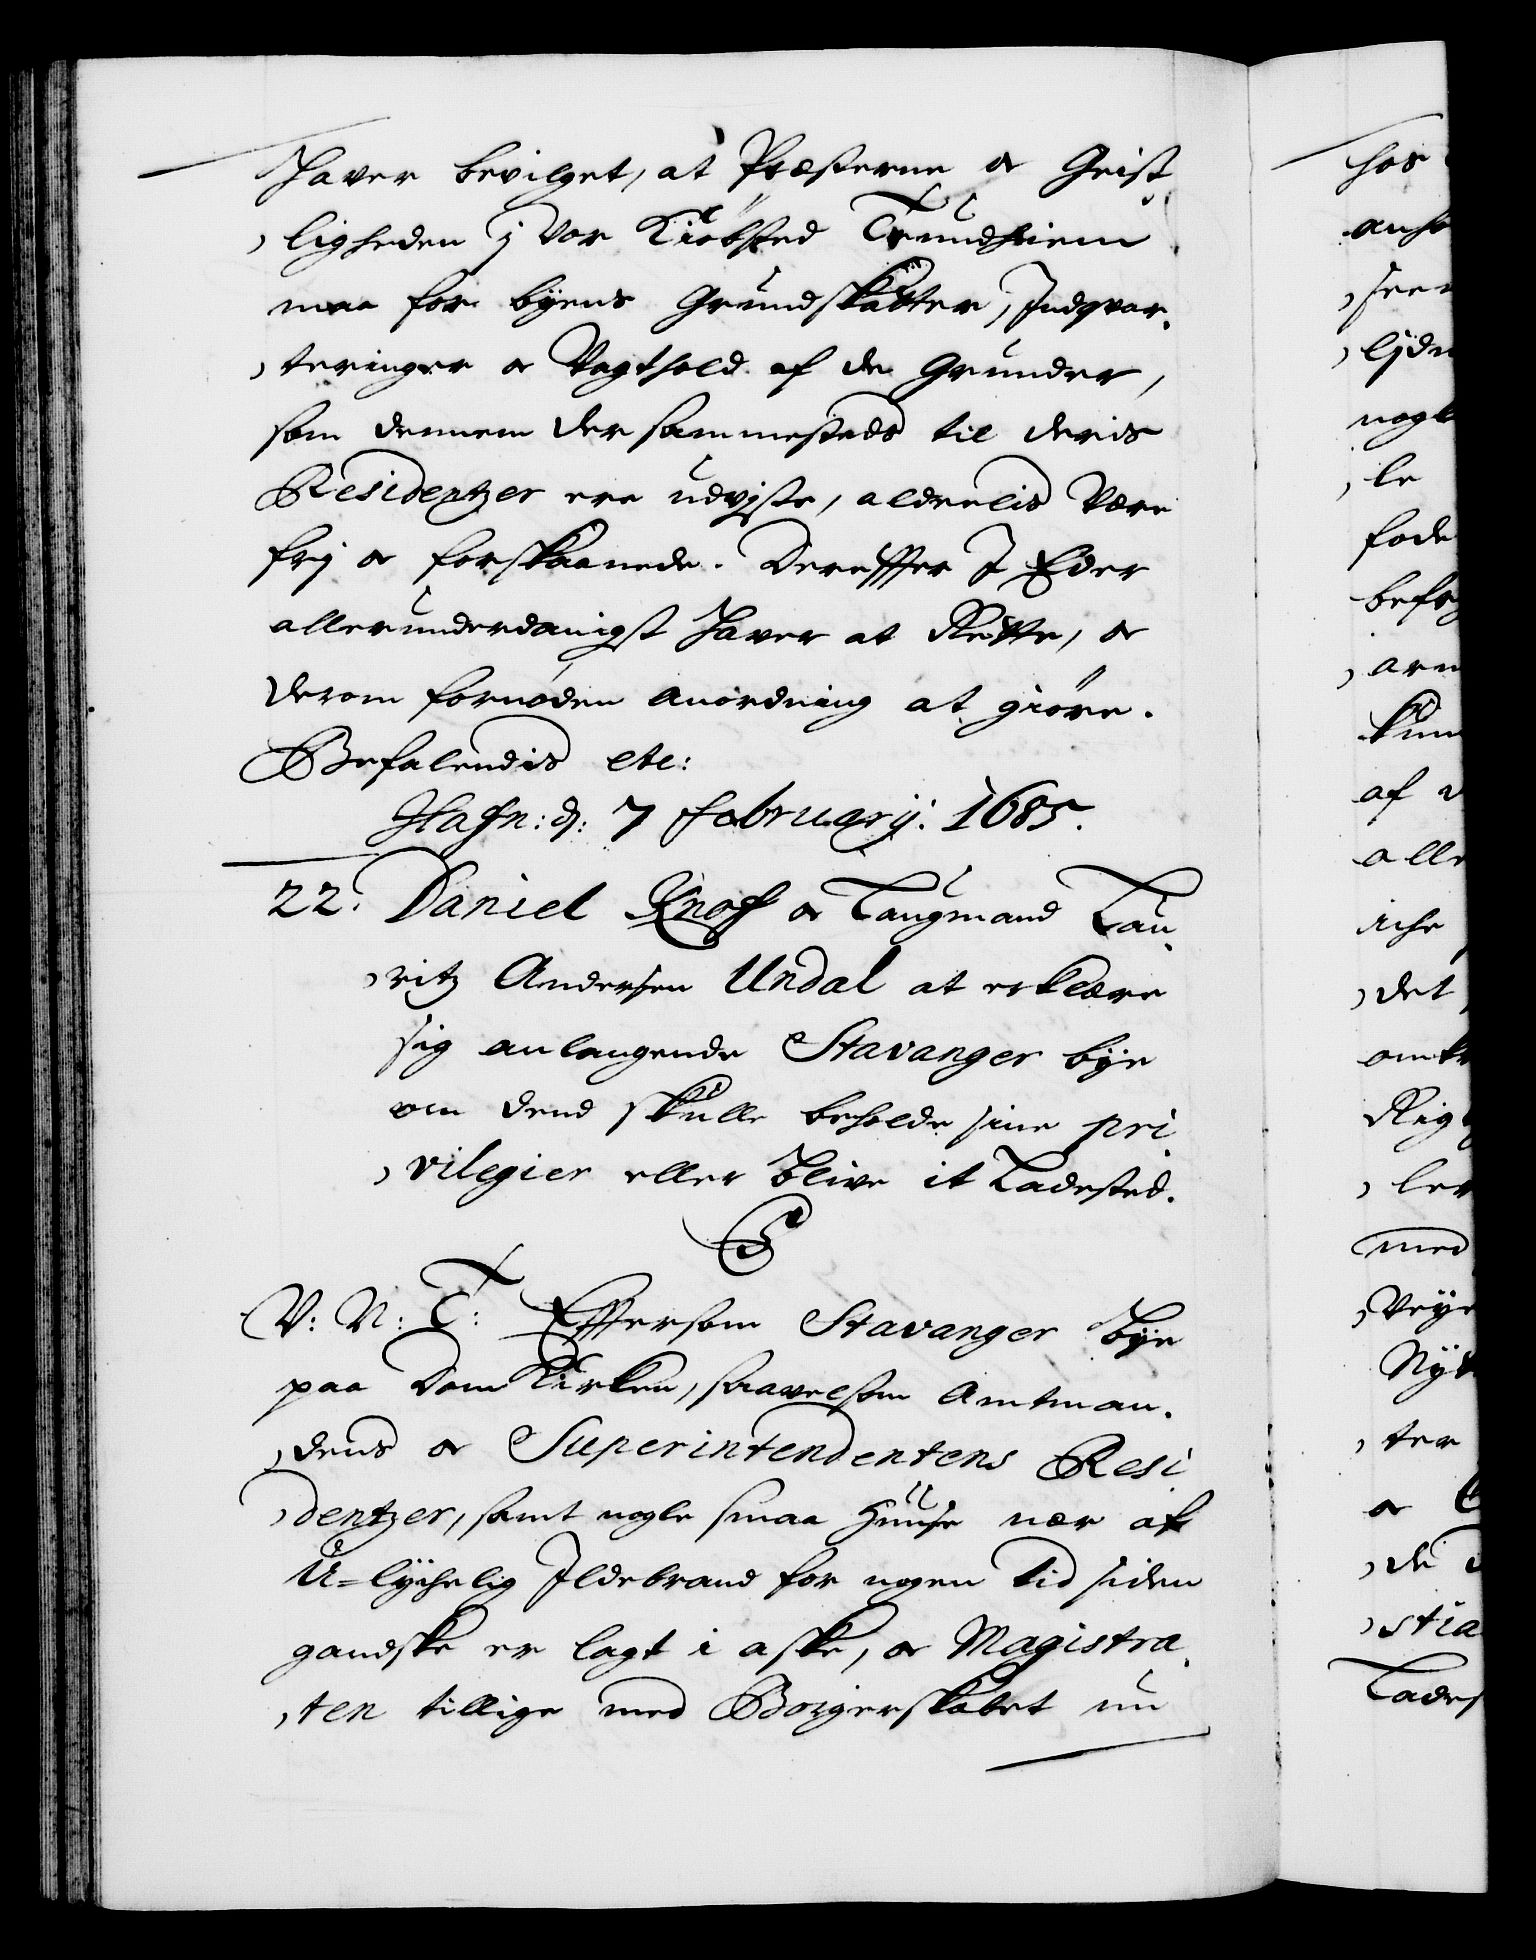 hafver bevilget, at Præsterne oc Geist
ligheden j vor Kiöbsted Trundhiem
maa for byens Grundskatter, Indqvar-
teringer oc Vagthold af de Grunder,
som dennem der sammesteds til deris
Residentzer ere udvjste, aldeelis være
frj oc forskaanede. Dereffter I Eder
allerunderdanigst hafver at Rette, oc
derom fornöden anordning at giöre.
Befalendis etc:
Hafn: d: 7 February: 1685.
22. Daniel Knoff oc Laugmand Lau-
ritz Andersen Undal at erklære
sig anlangende Stavanger bye
om dend skulle beholde sine pri
vilegier eller blive it Ladested.
C5
V: N: T: Effersom Stavanger bye
paa Dom Kirken, saavelsom Amtman-
dens oc Superintendentens Resi
dentzer, samt nogle smaa Huuse nær af
U=lychelig Ildebrand for nogen tid siden
gandske er lagt i aske, oc Magistra-
ten tillige med Borgerskabet nu